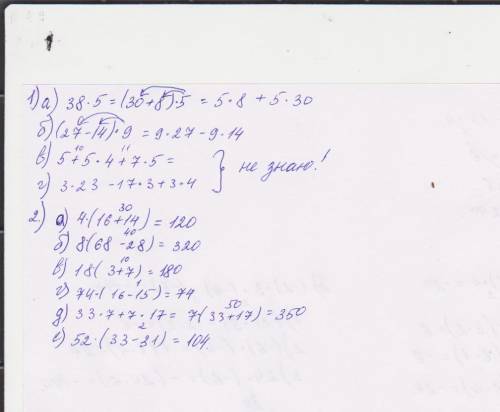 1) а) 38·5=(30+8)·5 = 5·8 + 5·30
б) (27-14)·9 = 9·27-9·14
в) 5+5·4+7·5=
10 11
г) 3·23-17·3+3·4
} не знаю!
2.) а) 4·(16+14)=120
30
б) 8(68-28)=320
40
в) 18(3+7)=180
10
г) 74·(16-15)=74
1
д) 33·7+7·17= 7(33+17)=350
50
е) 52·(33-31)=104.
2